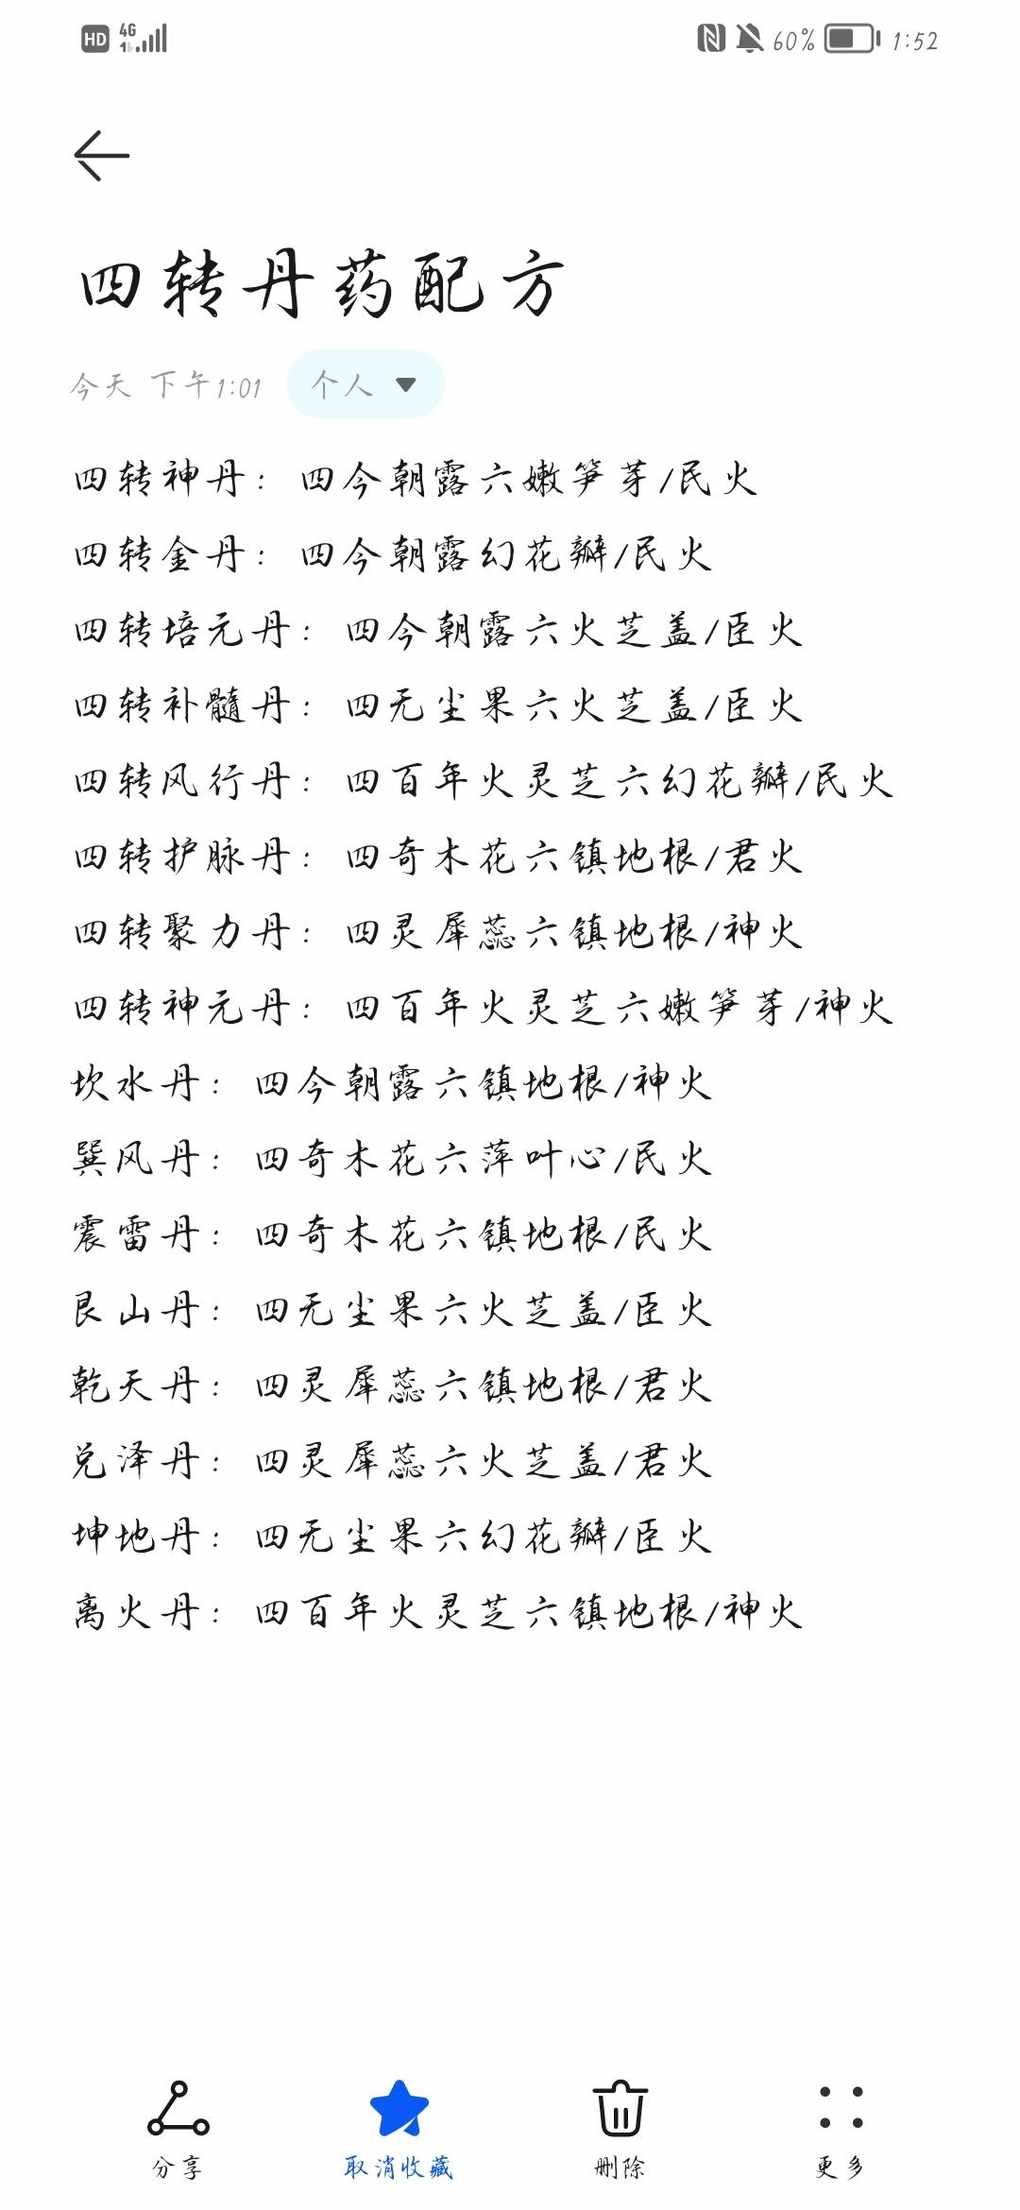 HD 4G 60% 1:52
四转丹药配方
今天 下午1:01 个人
四转神丹：四今朝露六嫩笋芽/民火
四转金丹：四今朝露幻花瓣/民火
四转培元丹：四今朝露六火芝盖/臣火
四转补髓丹：四无尘果六火芝盖/臣火
四转风行丹：四百年火灵芝六幻花瓣/民火
四转护脉丹：四奇木花六镇地根/君火
四转聚力丹：四灵犀蕊六镇地根/神火
四转神元丹：四百年火灵芝六嫩笋芽/神火
坎水丹：四今朝露六镇地根/神火
巽风丹：四奇木花六萍叶心/民火
震雷丹：四奇木花六镇地根/民火
艮山丹：四无尘果六火芝盖/臣火
乾天丹：四灵犀蕊六镇地根/君火
兑泽丹：四灵犀蕊六火芝盖/君火
坤地丹：四无尘果六幻花瓣/臣火
离火丹：四百年火灵芝六镇地根/神火
分享 取消收藏 删除 更多